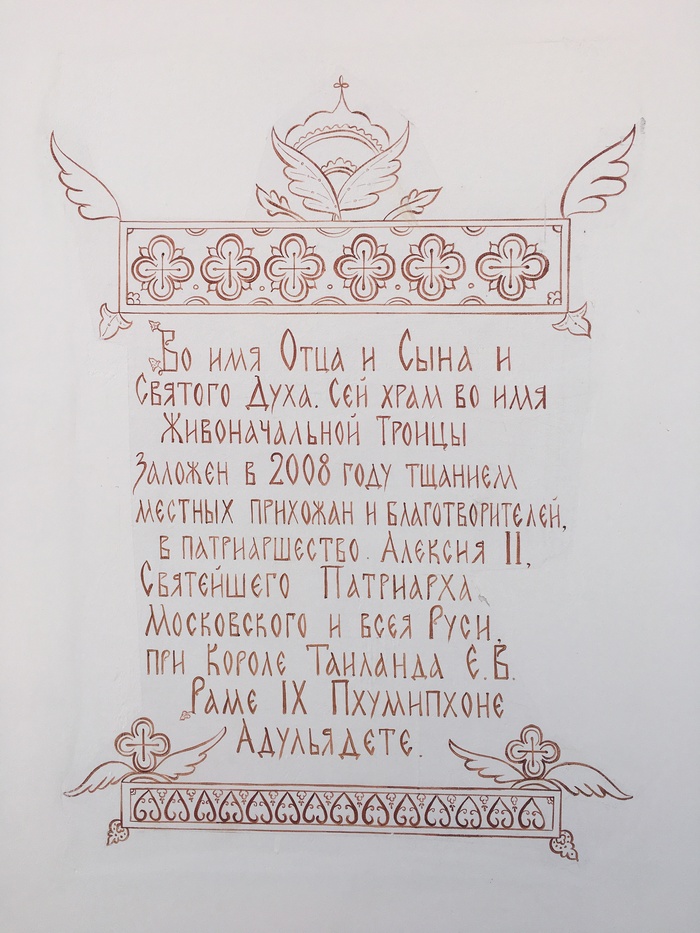 Во имя Отца и Сына и
Святого Духа. Сей храм во имя
Живоначальной Троицы
Заложен в 2008 году тщанием
местных прихожан и благотворителей,
в патриаршество Алексия II,
Святейшего Патриарха
Московского и всея Руси,
при Короле Таиланда Е.В.
Раме IX Пхумипхоне
Адульядете.